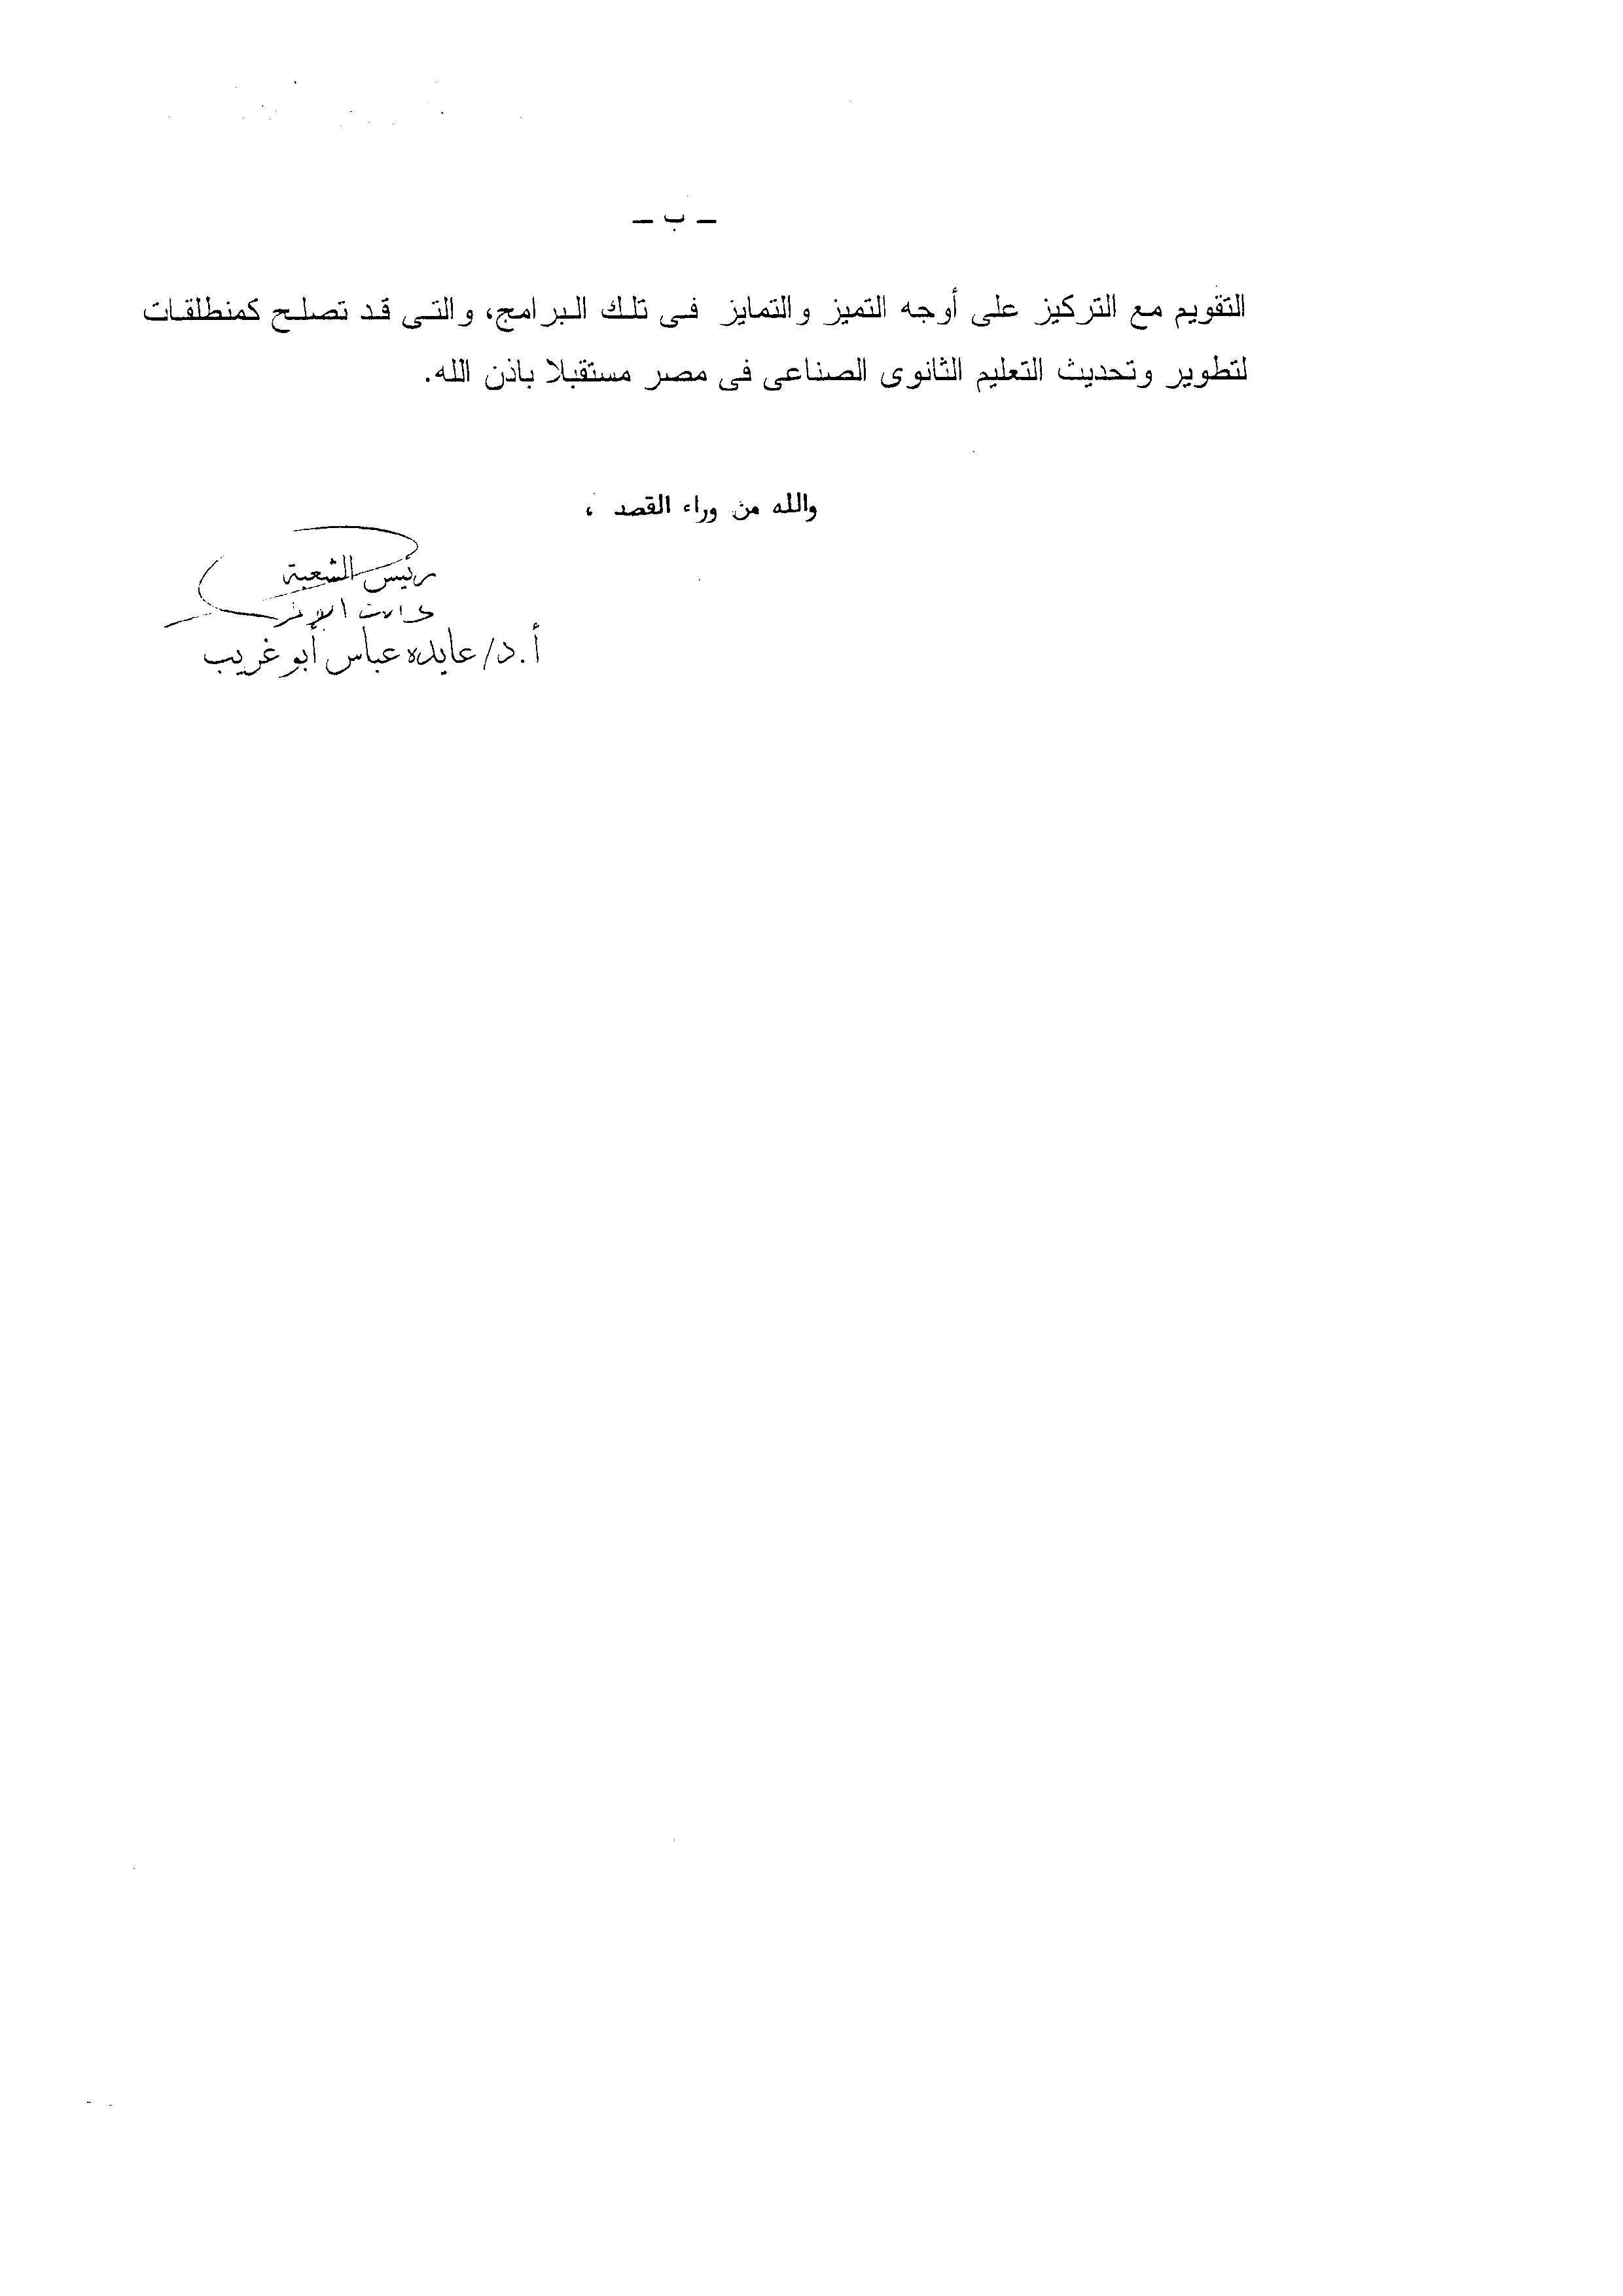 – ب –
التقويم مع التركيز على أوجه التميز والتمايز فى تلك البرامج، والتى قد تصلح كمنطلقات
لتطوير وتحديث التعليم الثانوى الصناعى فى مصر مستقبلا باذن الله.
والله من وراء القصد ،
رئيس الشعبة
أ.د/ عايده عباس أبو غريب